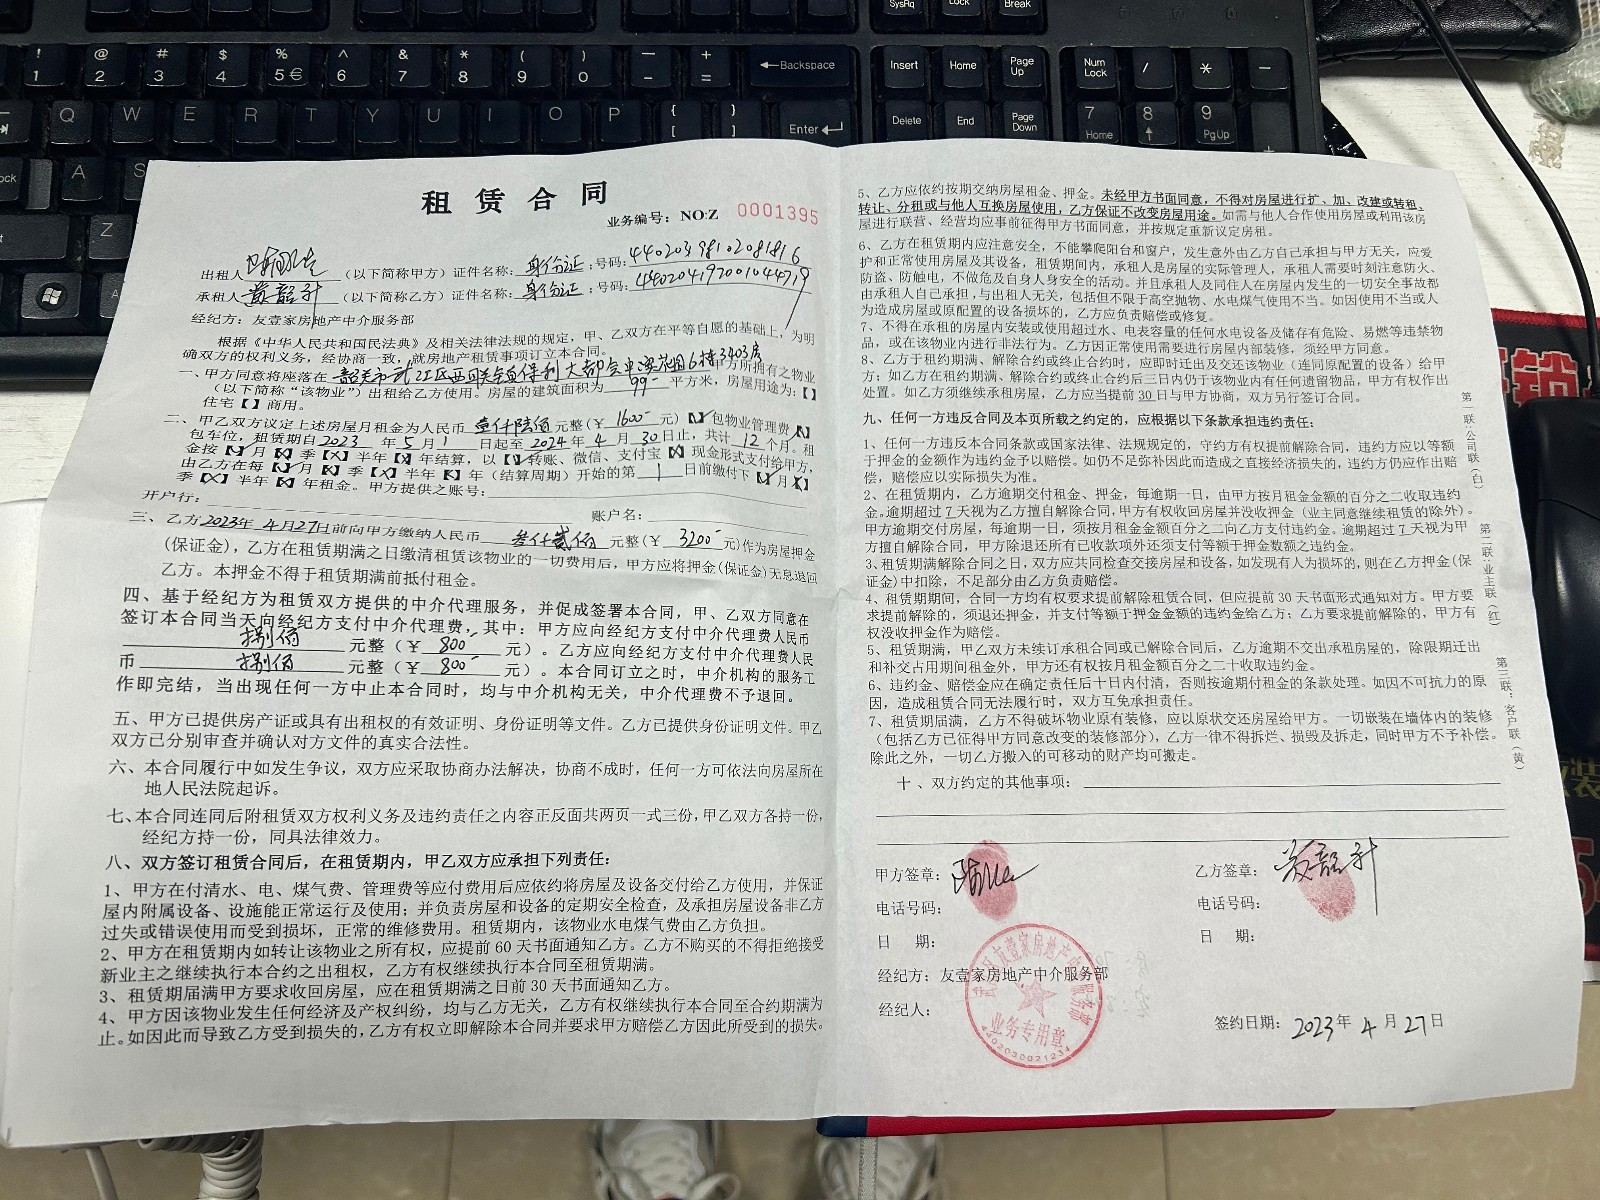 租赁合同
业务编号：NO:Z 0001395
出租人（以下简称甲方）证件名称：身份证；号码：
承租人（以下简称乙方）证件名称：身份证；号码：
经纪方：友壹家房地产中介服务部
根据《中华人民共和国民法典》及相关法律法规的规定，甲、乙双方在平等自愿的基础上，为明
确双方的权利义务，经协商一致，就房地产租赁事项订立本合同。
一、甲方同意将座落在 韶关市武江区西联镇保利大都会中 花园6栋3403房 甲方所拥有之物业
（以下简称“该物业”）出租给乙方使用。房屋的建筑面积为 99 平方米，房屋用途为：【】
住宅【】商用。
二、甲乙双方议定上述房屋月租金为人民币 壹仟陆佰 元整（￥1600 元）【】包物业管理费【】
包车位，租赁期自2023年5月1日起至2024年4月30日止，共计12个月。租
金按【】月【】季【】半年【】年结算，以【】转账、微信、支付宝【】现金形式支付给甲方，
由乙方在每【】月【】季【】半年【】年（结算周期）开始的第1日前缴付下【】月【】
季【】半年【】年租金。甲方提供之账号：
开户行： 账户名：
三、乙方2023年4月27日前向甲方缴纳人民币 叁仟贰佰 元整（￥3200 元）作为房屋押金
（保证金），乙方在租赁期满之日缴清租赁该物业的一切费用后，甲方应将押金（保证金）无息退回
乙方。本押金不得于租赁期满前抵付租金。
四、基于经纪方为租赁双方提供的中介代理服务，并促成签署本合同，甲、乙双方同意在
签订本合同当天向经纪方支付中介代理费，其中：甲方应向经纪方支付中介代理费人民币
捌佰 元整（￥800 元）。乙方应向经纪方支付中介代理费人民
币 捌佰 元整（￥800 元）。本合同订立之时，中介机构的服务工
作即完结，当出现任何一方中止本合同时，均与中介机构无关，中介代理费不予退回。
五、甲方已提供房产证或具有出租权的有效证明、身份证明等文件。乙方已提供身份证明文件。甲乙
双方已分别审查并确认对方文件的真实合法性。
六、本合同履行中如发生争议，双方应采取协商办法解决，协商不成时，任何一方可依法向房屋所在
地人民法院起诉。
七、本合同连同后附租赁双方权利义务及违约责任之内容正反面共两页一式三份，甲乙双方各持一份，
经纪方持一份，同具法律效力。
八、双方签订租赁合同后，在租赁期内，甲乙双方应承担下列责任：
1、甲方在付清水、电、煤气费、管理费等应付费用后应依约将房屋及设备交付给乙方使用，并保证
屋内附属设备、设施能正常运行及使用；并负责房屋和设备的定期安全检查，及承担房屋设备非乙方
过失或错误使用而受到损坏，正常的维修费用。租赁期内，该物业水电煤气费由乙方负担。
2、甲方在租赁期内如转让该物业之所有权，应提前60天书面通知乙方。乙方不购买的不得拒绝接受
新业主之继续执行本合约之出租权，乙方有权继续执行本合同至租赁期满。
3、租赁期届满甲方要求收回房屋，应在租赁期满之日前30天书面通知乙方。
4、甲方因该物业发生任何经济及产权纠纷，均与乙方无关，乙方有权继续执行本合同至合约期满为
止。如因此而导致乙方受到损失的，乙方有权立即解除本合同并要求甲方赔偿乙方因此所受到的损失。
5、乙方应依约按期交纳房屋租金、押金。未经甲方书面同意，不得对房屋进行扩、加、改建或转租、
转让、分租或与他人互换房屋使用，乙方保证不改变房屋用途。如需与他人合作使用房屋或利用该房
屋进行联营、经营均应事前征得甲方书面同意，并按规定重新议定房租。
6、乙方在租赁期内应注意安全，不能攀爬阳台和窗户，发生意外由乙方自己承担与甲方无关，应爱
护和正常使用房屋及其设备，租赁期间内，承租人是房屋的实际管理人，承租人需要时刻注意防火、
防盗、防触电，不做危及自身人身安全的活动。并且承租人及同住人在房屋内发生的一切安全事故都
由承租人自己承担，与出租人无关，包括但不限于高空抛物、水电煤气使用不当。如因使用不当或人
为造成房屋或原配置的设备损坏的，乙方应负责赔偿或修复。
7、不得在承租的房屋内安装或使用超过水、电表容量的任何水电设备及储存有危险、易燃等违禁物
品，或在该物业内进行非法行为。乙方因正常使用需要进行房屋内部装修，须经甲方同意。
8、乙方于租约期满、解除合约或终止合约时，应即时迁出及交还该物业（连同原配置的设备）给甲
方；如乙方在租约期满、解除合约或终止合约后三日内仍于该物业内有任何遗留物品，甲方有权作出
处置。如乙方须继续承租房屋，乙方应当提前30日与甲方协商，双方另行签订合同。
九、任何一方违反合同及本页所载之约定的，应根据以下条款承担违约责任：
1、任何一方违反本合同条款或国家法律、法规规定的，守约方有权提前解除合同，违约方应以等额
于押金的金额作为违约金予以赔偿。如仍不足弥补因此而造成之直接经济损失的，违约方仍应作出赔
偿，赔偿应以实际损失为准。
2、在租赁期内，乙方逾期交付租金、押金，每逾期一日，由甲方按月租金金额的百分之二收取违约
金。逾期超过7天视为乙方擅自解除合同，甲方有权收回房屋并没收押金（业主同意继续租赁的除外）。
甲方逾期交付房屋，每逾期一日，须按月租金金额百分之二向乙方支付违约金。逾期超过7天视为甲
方擅自解除合同，甲方除退还所有已收款项外还须支付等额于押金数额之违约金。
3、租赁期满解除合同之日，双方应共同检查交接房屋和设备，如发现有人为损坏的，则在乙方押金（保
证金）中扣除，不足部分由乙方负责赔偿。
4、租赁期期间，合同一方均有权要求提前解除租赁合同，但应提前30天书面形式通知对方。甲方要
求提前解除的，须退还押金，并支付等额于押金金额的违约金给乙方；乙方要求提前解除的，甲方有
权没收押金作为赔偿。
5、租赁期满，甲乙双方未续订承租合同或已解除合同后，乙方逾期不交出承租房屋的，除限期迁出
和补交占用期间租金外，甲方还有权按月租金额百分之二十收取违约金。
6、违约金、赔偿金应在确定责任后十日内付清，否则按逾期付租金的条款处理。如因不可抗力的原
因，造成租赁合同无法履行时，双方互免承担责任。
7、租赁期届满，乙方不得破坏物业原有装修，应以原状交还房屋给甲方。一切嵌装在墙体内的装修
（包括乙方已征得甲方同意改变的装修部分），乙方一律不得拆烂、损毁及拆走，同时甲方不予补偿。
除此之外，一切乙方搬入的可移动的财产均可搬走。
十、双方约定的其他事项：
甲方签章： 乙方签章：
电话号码： 电话号码：
日 期： 日 期：
经纪方：友壹家房地产中介服务部
经纪人：
签约日期：2023年4月27日
业务专用章
第一联：公司联（白）
第二联：业主联（红）
第三联：客户联（黄）